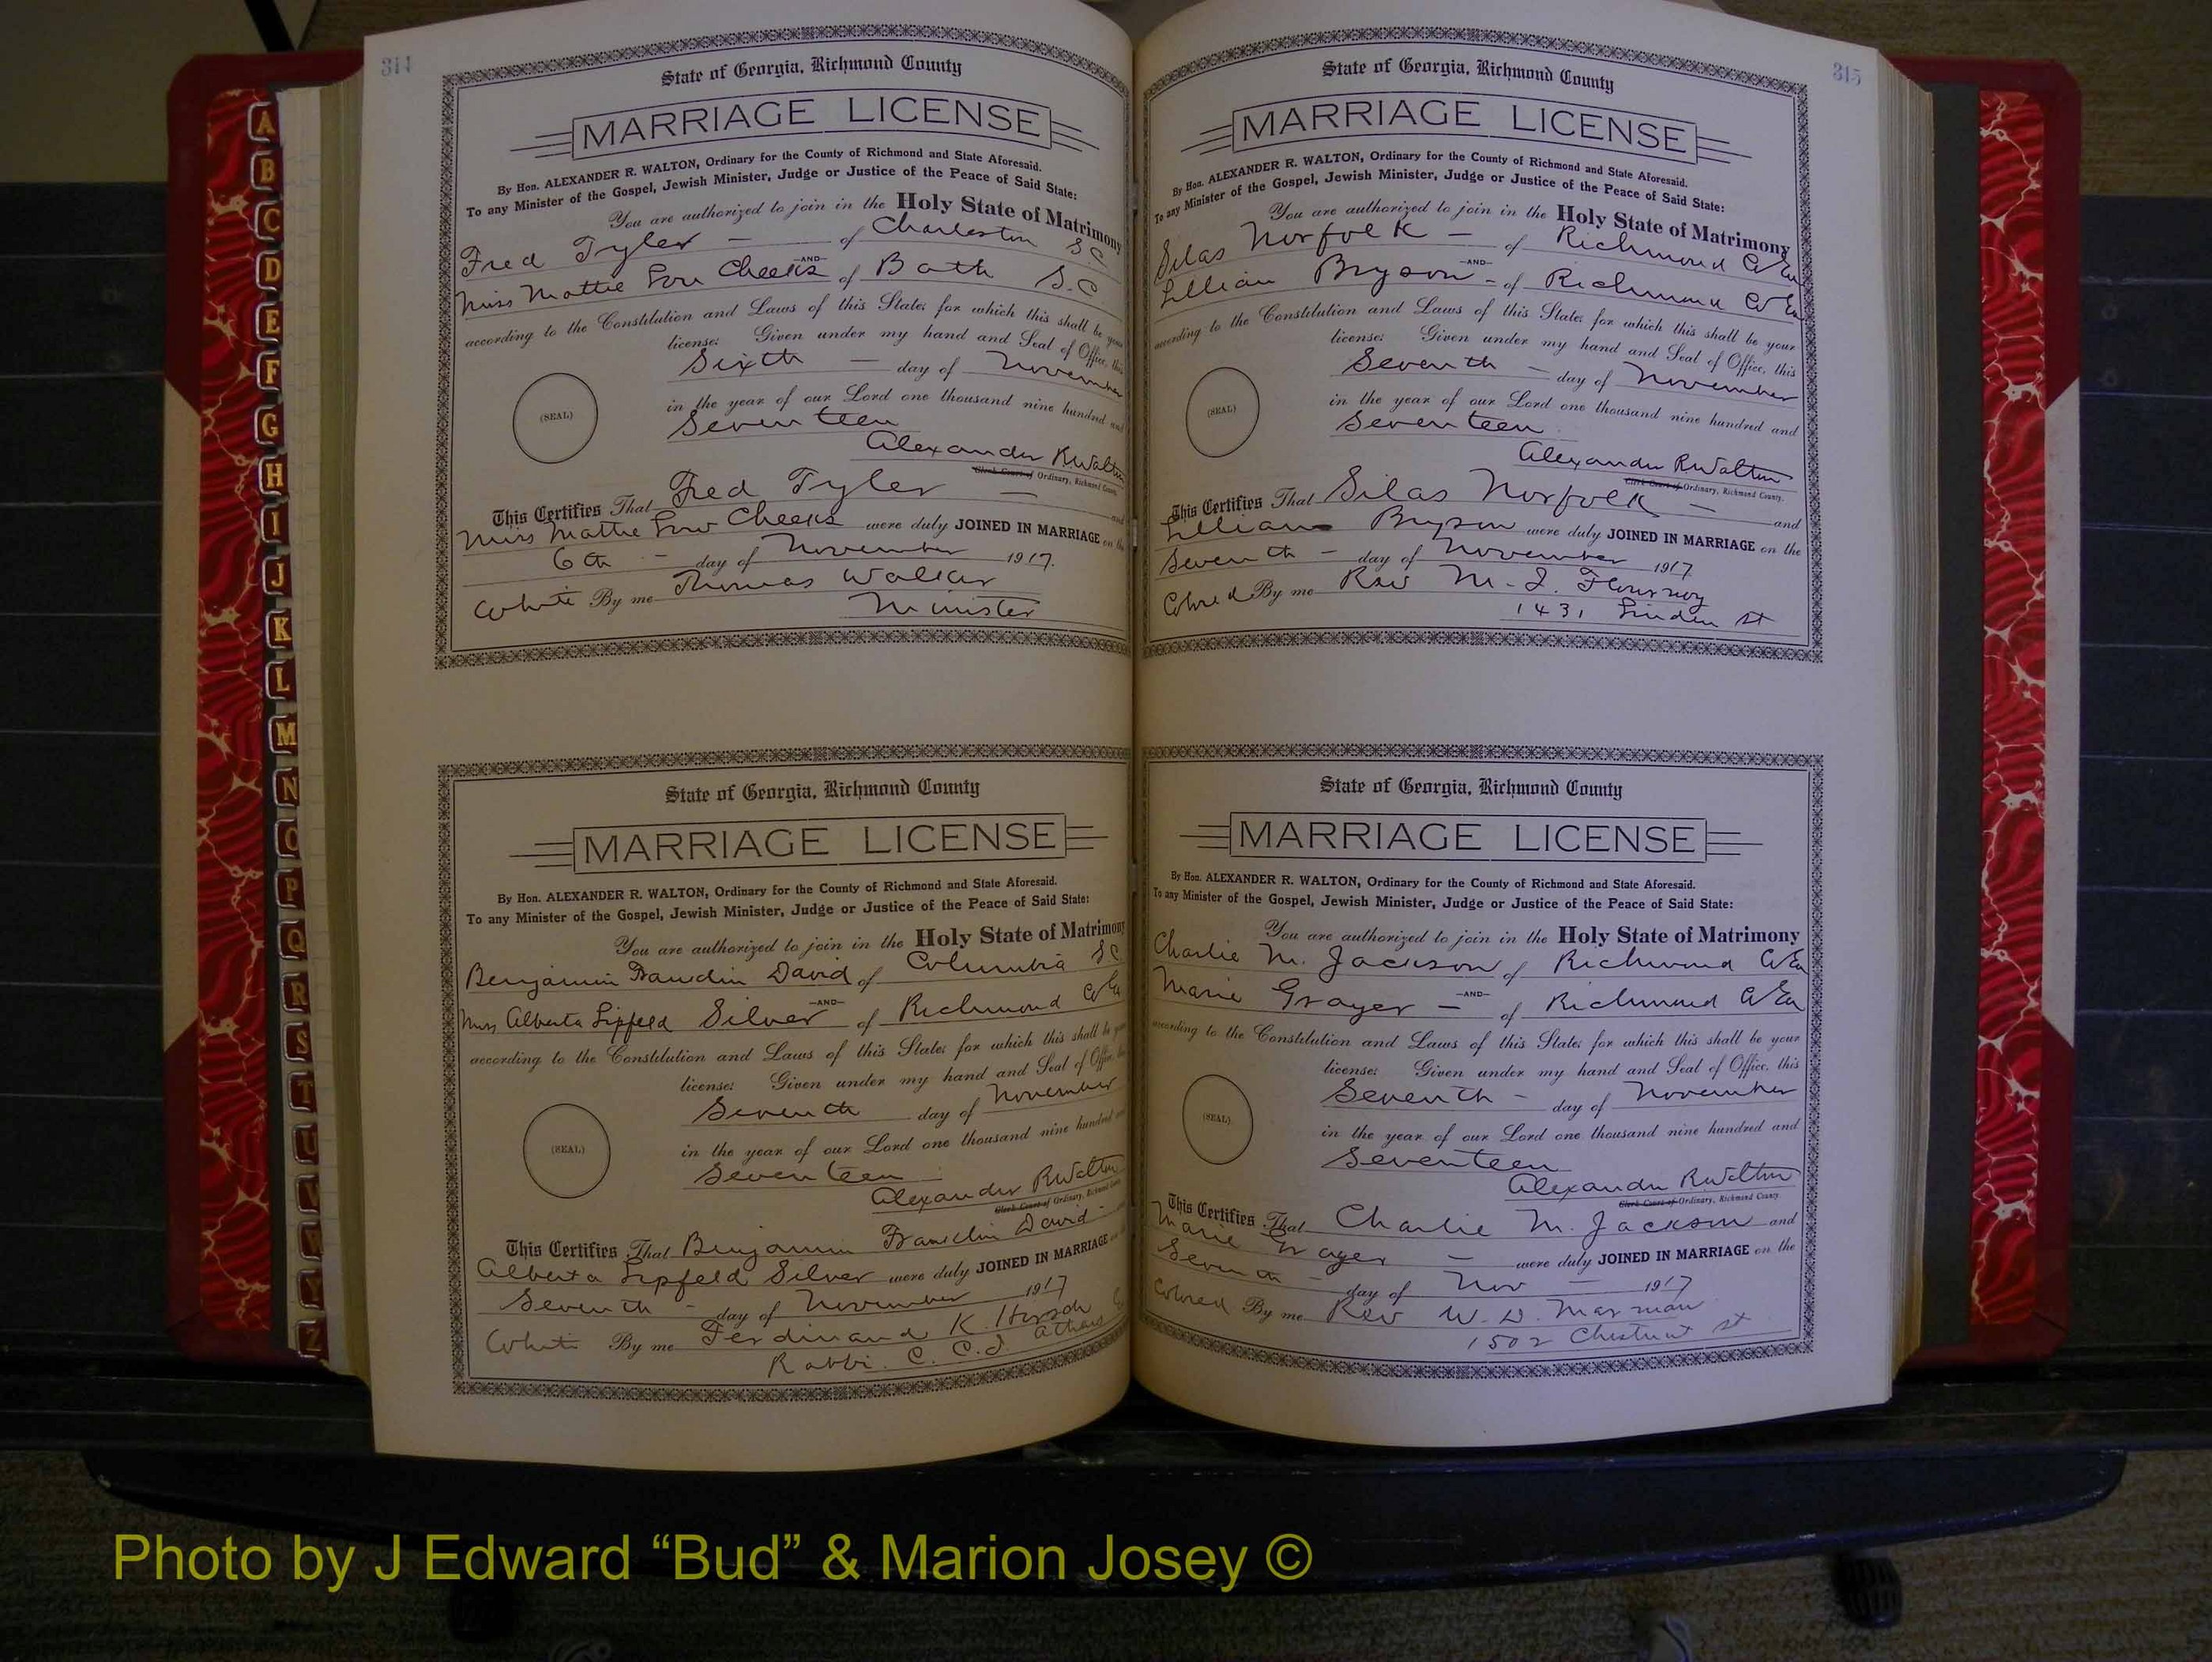 314
State of Georgia, Richmond County
MARRIAGE LICENSE
By Hon. ALEXANDER R. WALTON, Ordinary for the County of Richmond and State Aforesaid.
To any Minister of the Gospel, Jewish Minister, Judge or Justice of the Peace of Said State:
You are authorized to join in the Holy State of Matrimony
Fred Tyler — of Charleston S C
—AND—
Miss Mattie Lou Cheeks of Bath S.C
according to the Constitution and Laws of this State; for which this shall be your
license: Given under my hand and Seal of Office, this
Sixth — day of November
in the year of our Lord one thousand nine hundred and
Seventeen
(SEAL)
Alexander R Walton
Clerk Court of Ordinary, Richmond County.
This Certifies That Fred Tyler — and
Miss Mattie Low Cheeks were duly JOINED IN MARRIAGE on the
6th — day of November 1917.
White By me Thomas Walker
Minister
State of Georgia, Richmond County
MARRIAGE LICENSE
By Hon. ALEXANDER R. WALTON, Ordinary for the County of Richmond and State Aforesaid.
To any Minister of the Gospel, Jewish Minister, Judge or Justice of the Peace of Said State:
You are authorized to join in the Holy State of Matrimony
Benjamin Franclin David of Columbia S C
—AND—
Miss Alberta Lipfeld Silver of Richmond Co Ga
according to the Constitution and Laws of this State; for which this shall be your
license: Given under my hand and Seal of Office, this
Seventh day of November
in the year of our Lord one thousand nine hundred and
Seventeen
(SEAL)
Alexander R Walton
Clerk Court of Ordinary, Richmond County
This Certifies That Benjamin Franclin David
Alberta Lipfeld Silver were duly JOINED IN MARRIAGE
Seventh — day of November 1917
White By me Ferdinand K. Hirsch
Rabbi. C. C. I. Athens Ga
315
State of Georgia, Richmond County
MARRIAGE LICENSE
By Hon. ALEXANDER R. WALTON, Ordinary for the County of Richmond and State Aforesaid.
To any Minister of the Gospel, Jewish Minister, Judge or Justice of the Peace of Said State:
You are authorized to join in the Holy State of Matrimony
Silas Norfolk — of Richmond Co Ga
—AND—
Lillian Bryson - of Richmond Co Ga
according to the Constitution and Laws of this State; for which this shall be your
license: Given under my hand and Seal of Office, this
Seventh — day of November
in the year of our Lord one thousand nine hundred and
Seventeen
(SEAL)
Alexander R Walton
Clerk Court of Ordinary, Richmond County.
This Certifies That Silas Norfolk — and
Lillian Bryson were duly JOINED IN MARRIAGE on the
Seventh — day of November 1917
Colored By me Rev M. J. Flournoy
1431 Linden st
State of Georgia, Richmond County
MARRIAGE LICENSE
By Hon. ALEXANDER R. WALTON, Ordinary for the County of Richmond and State Aforesaid.
To any Minister of the Gospel, Jewish Minister, Judge or Justice of the Peace of Said State:
You are authorized to join in the Holy State of Matrimony
Charlie M. Jackson of Richmond Co Ga
—AND—
Marie Grayer — of Richmond Co Ga
according to the Constitution and Laws of this State; for which this shall be your
license: Given under my hand and Seal of Office, this
Seventh - day of November
in the year of our Lord one thousand nine hundred and
Seventeen
(SEAL)
Alexander R Walton
Clerk Court of Ordinary, Richmond County
This Certifies That Charlie M. Jackson and
Marie Grayer — were duly JOINED IN MARRIAGE on the
Seventh — day of Nov — 1917
Colored By me Rev W. D. Marman
1502 Chestnut st
A
B
C
D
E
F
G
H
I
J
K
L
M
N
O
P
Q
R
S
T
U
V
W
Y
Z
Photo by J Edward “Bud” & Marion Josey ©